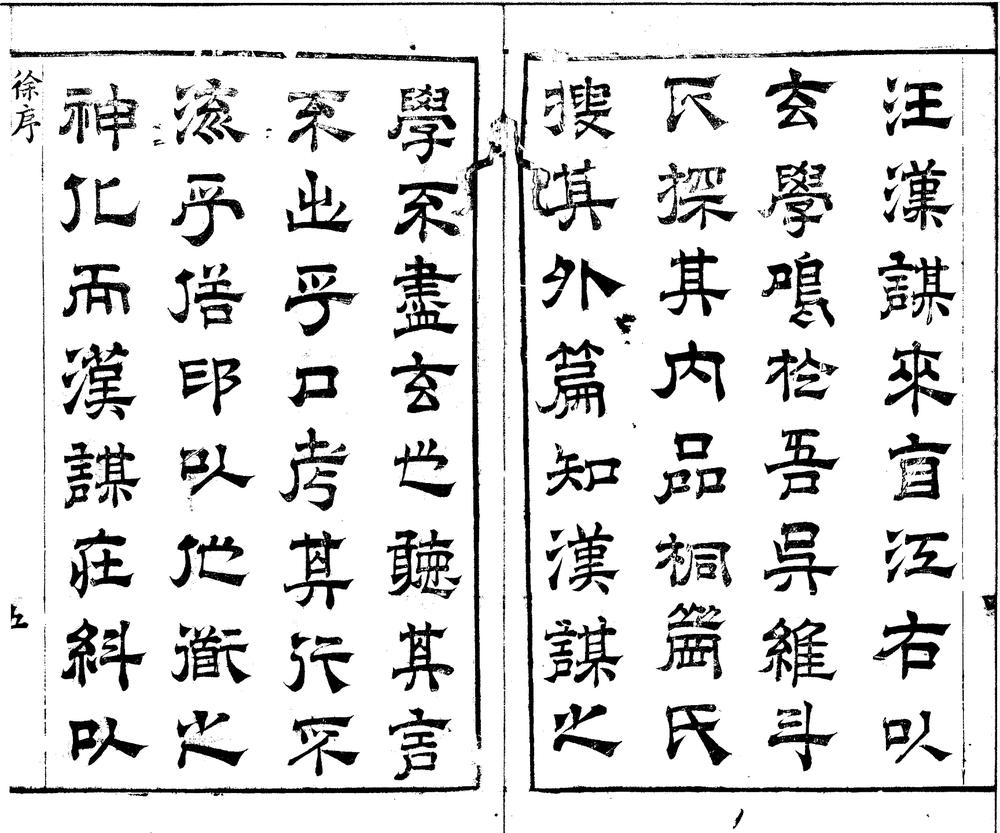 汪漢謀來自江右以
玄學鳴於吾吳維斗
氏探其内品桐崗氏
搜其外篇知漢謀之
學不盡玄也聽其言
不出乎口考其行不
流乎俗即以他衟之
神化而漢謀在紏以
徐序